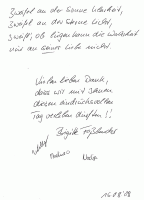 Zweifel an der Sonne Klarheit,
Zweifel an der Sterne Licht,
Zweifl', ob lügen kann die Wahrheit
nur an meiner Liebe nicht.
Vielen lieben Dank,
dass wir mit Ihnen
diesen eindrucksvollen
Tag erleben durften !!
Brigitte
Nadja
16.08.08